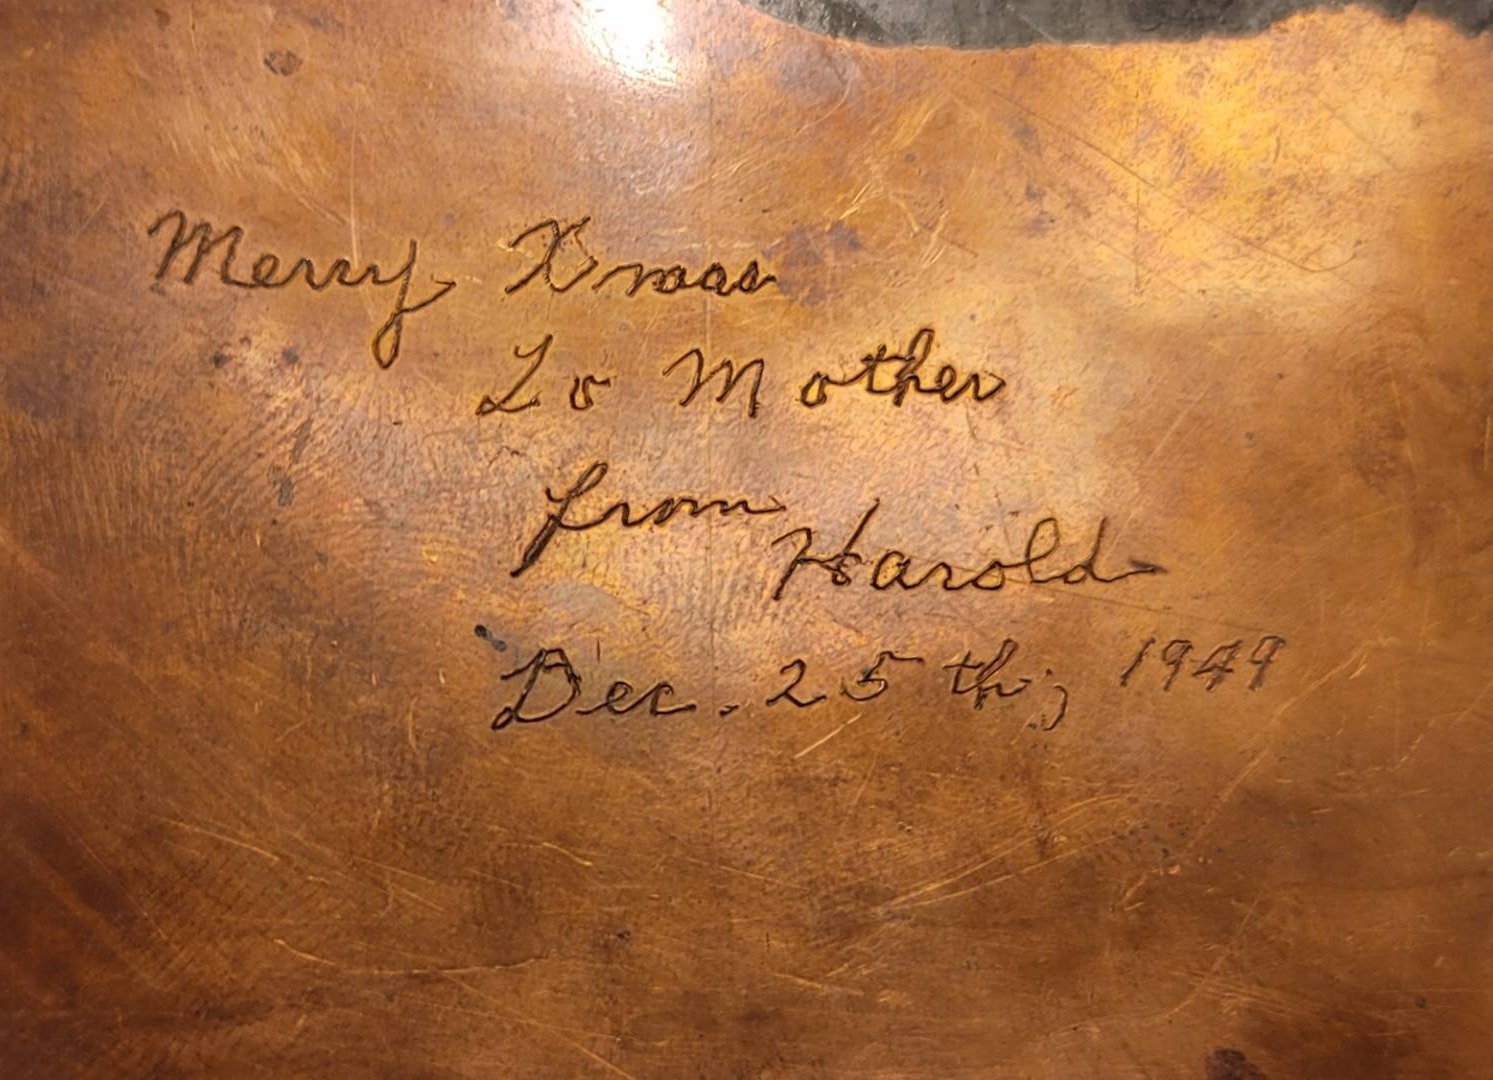 Merry Xmas
To Mother
from
Harold
Dec. 25th, 1949